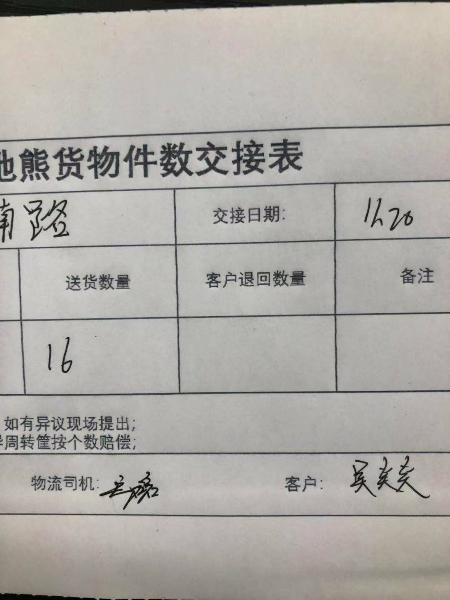 熊货物件数交接表
南路 交接日期: 1.20
送货数量 客户退回数量 备注
16
如有异议现场提出;
周转筐按个数赔偿;
物流司机: 客户: